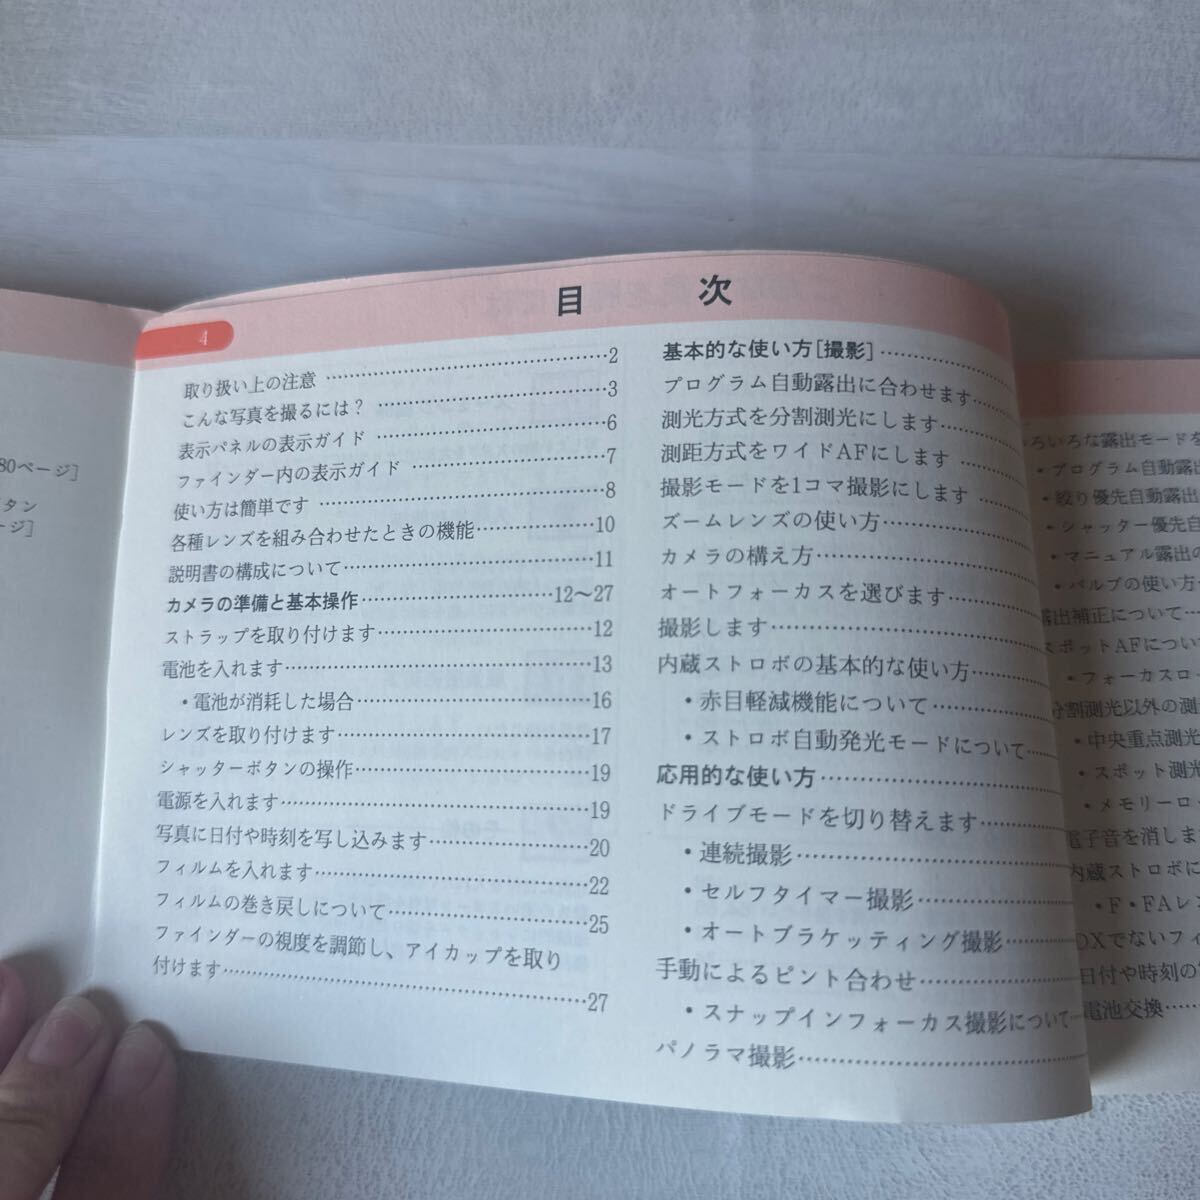 80ページ]
タン
ージ]
4
目次
取り扱い上の注意……2
こんな写真を撮るには?……3
表示パネルの表示ガイド……6
ファインダー内の表示ガイド……7
使い方は簡単です……8
各種レンズを組み合わせたときの機能……10
説明書の構成について……11
カメラの準備と基本操作……12〜27
ストラップを取り付けます……12
電池を入れます……13
・電池が消耗した場合……16
レンズを取り付けます……17
シャッターボタンの操作……19
電源を入れます……19
写真に日付や時刻を写し込みます……20
フィルムを入れます……22
フィルムの巻き戻しについて……25
ファインダーの視度を調節し、アイカップを取り
付けます……27
基本的な使い方[撮影]……
プログラム自動露出に合わせます……
測光方式を分割測光にします……
測距方式をワイドAFにします……
撮影モードを1コマ撮影にします……
ズームレンズの使い方……
カメラの構え方……
オートフォーカスを選びます……
撮影します……
内蔵ストロボの基本的な使い方……
・赤目軽減機能について……
・ストロボ自動発光モードについて……
応用的な使い方……
ドライブモードを切り替えます……
・連続撮影……
・セルフタイマー撮影……
・オートブラケッティング撮影……
手動によるピント合わせ……
・スナップインフォーカス撮影について……
パノラマ撮影……
ろいろな露出モードを
・プログラム自動露出
・絞り優先自動露出
・シャッター優先自
・マニュアル露出の
・バルブの使い方
露出補正について……
スポットAFについ
・フォーカスロッ
分割測光以外の測
・中央重点測光
・スポット測光
・メモリーロッ
電子音を消しま
内蔵ストロボに
・F・FAレン
DXでないフィ
日付や時刻の
電池交換……